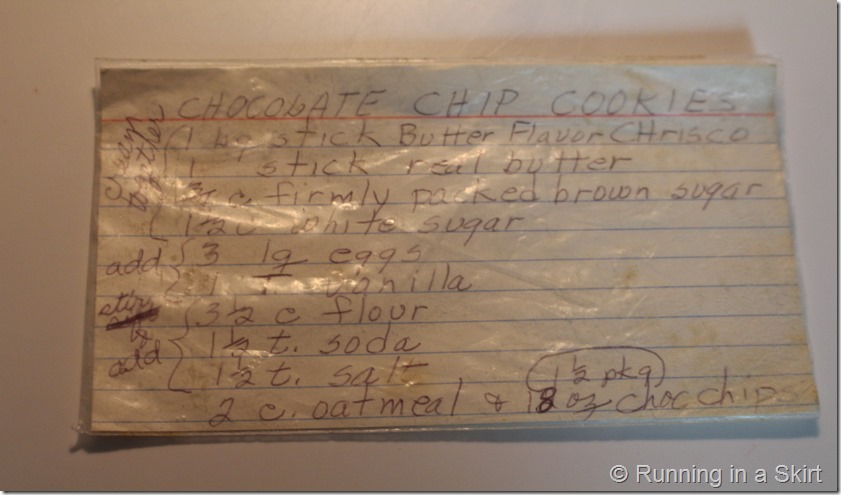 CHOCOLATE CHIP COOKIES
cream together
1 bg stick Butter Flavor CHrisco
1 stick real butter
c. firmly packed brown sugar
1½ c white sugar
add
3 lg eggs
1 T. vanilla
stir & add
3½ c flour
1½ t. soda
1½ t. salt
1½ pkg
2 c. oatmeal & 18 oz choc chips
© Running in a Skirt